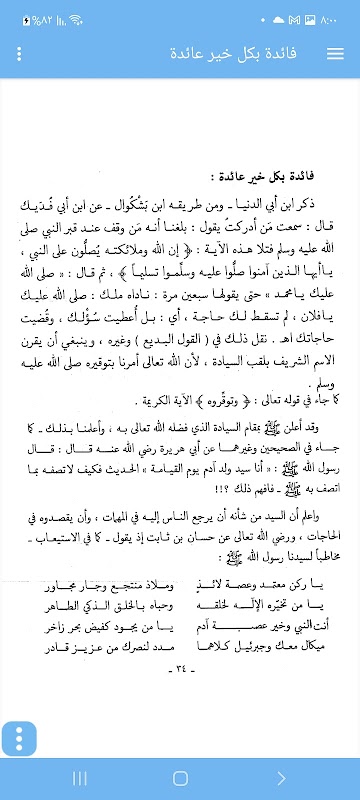 ٨:٠٠
٨٢%
فائدة بكل خير عائدة
فائدة بكل خير عائدة :
ذكر ابن أبي الدنيا ـ ومن طريقه ابن بَشْكُوال ـ عن ابن أبي فُدَيك
قال : سمعت مَن أدركتُ يقول : بلغنا أنه مَن وقف عند قبر النبي صلى
الله عليه وسلم فتلا هذه الآية : ﴿ إن الله وملائكته يُصلُّون على النبي ،
ياأيها الذين آمنوا صلُّوا عليه وسلِّموا تسليماً ﴾ ، ثم قال : « صلى الله
عليك يامحمد » حتى يقولها سبعين مرة : ناداه ملك : صلى الله عليك
يافلان ، لم تسقط لك حاجة ، أي : بل أُعطيت سُؤْلك ، وقُضيت
حاجاتك اهـ . نقل ذلك في ( القول البديع ) وغيره ، وينبغي أن يقرن
الاسم الشريف بلقب السيادة ، لأن الله تعالى أمرنا بتوقيره صلى الله عليه
وسلم .
كما جاء في قوله تعالى : ﴿ وتوقّروه ﴾ الآية الكريمة .
وقد أعلن ﷺ بمقام السيادة الذي فضله الله تعالى به ، وأعلمنا بذلك ـ كما
جاء في الصحيحين وغيرهما عن أبي هريرة رضي الله عنه قال : قال
رسول الله ﷺ : « أنا سيد ولد آدم يوم القيامة » الحديث فكيف لانصفه بما
اتصف به ﷺ ـ فافهم ذلك ؟!!
واعلم أن السيد من شأنه أن يرجع الناس إليه في المهمات ، وأن يقصدوه في
الحاجات ، ورضي الله تعالى عن حسان بن ثابت إذ يقول ـ كما في الاستيعاب ـ
مخاطباً لسيدنا رسول الله ﷺ :
يا ركن معتمد وعصمة لائذ وملاذ منتجع وجار مجاور
يا من تخيّره الإلَه لخلقه وحباه بالخلق الذكي الطاهر
أنت النبي وخير عصبة آدم يا من يجود كفيض بحر زاخر
ميكال معك وجبرئيل كلاهما مدد لنصرك من عزيز قادر
ـ ٣٤ ـ